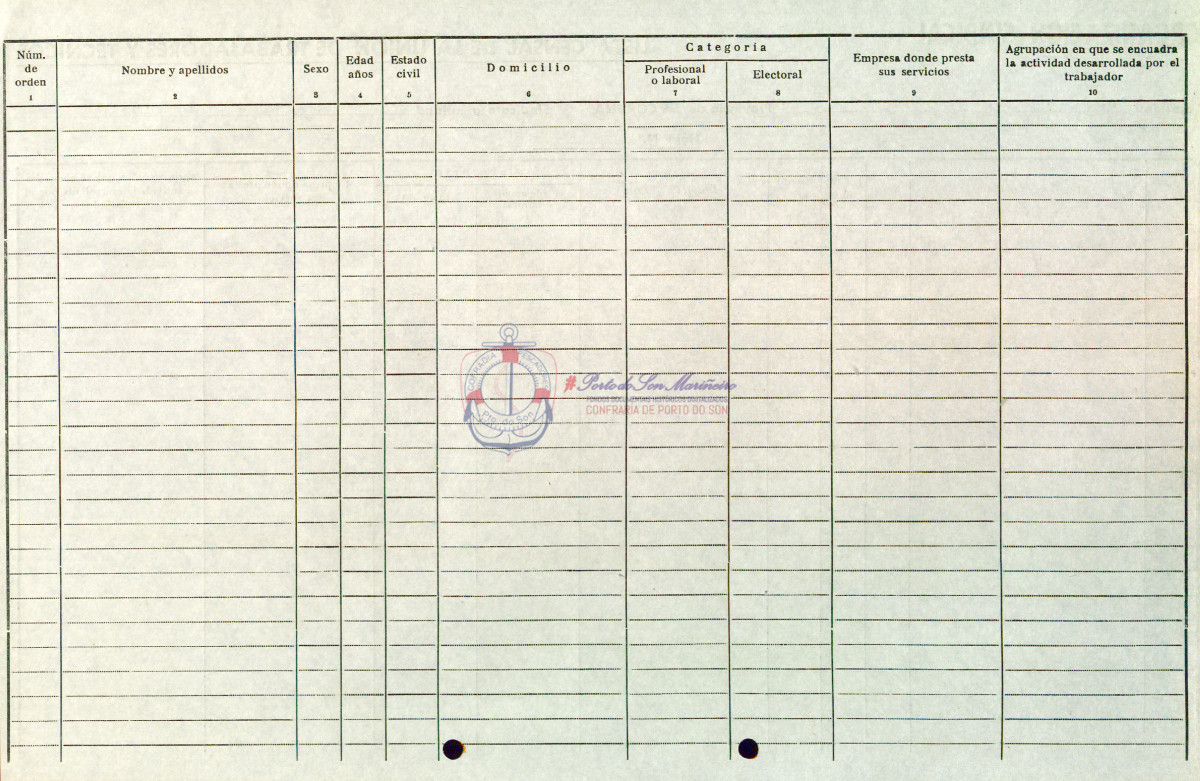 Núm.
de
orden
1
Nombre y apellidos
2
Sexo
3
Edad
años
4
Estado
civil
5
Domicilio
6
Categoría
Profesional
o laboral
7
Electoral
8
Empresa donde presta
sus servicios
9
Agrupación en que se encuadra
la actividad desarrollada por el
trabajador
10
#Porto do Son Mariñeiro
FONDOS DOCUMENTAIS HISTÓRICOS DIXITALIZADOS
CONFRARÍA DE PORTO DO SON
Pto. do Son